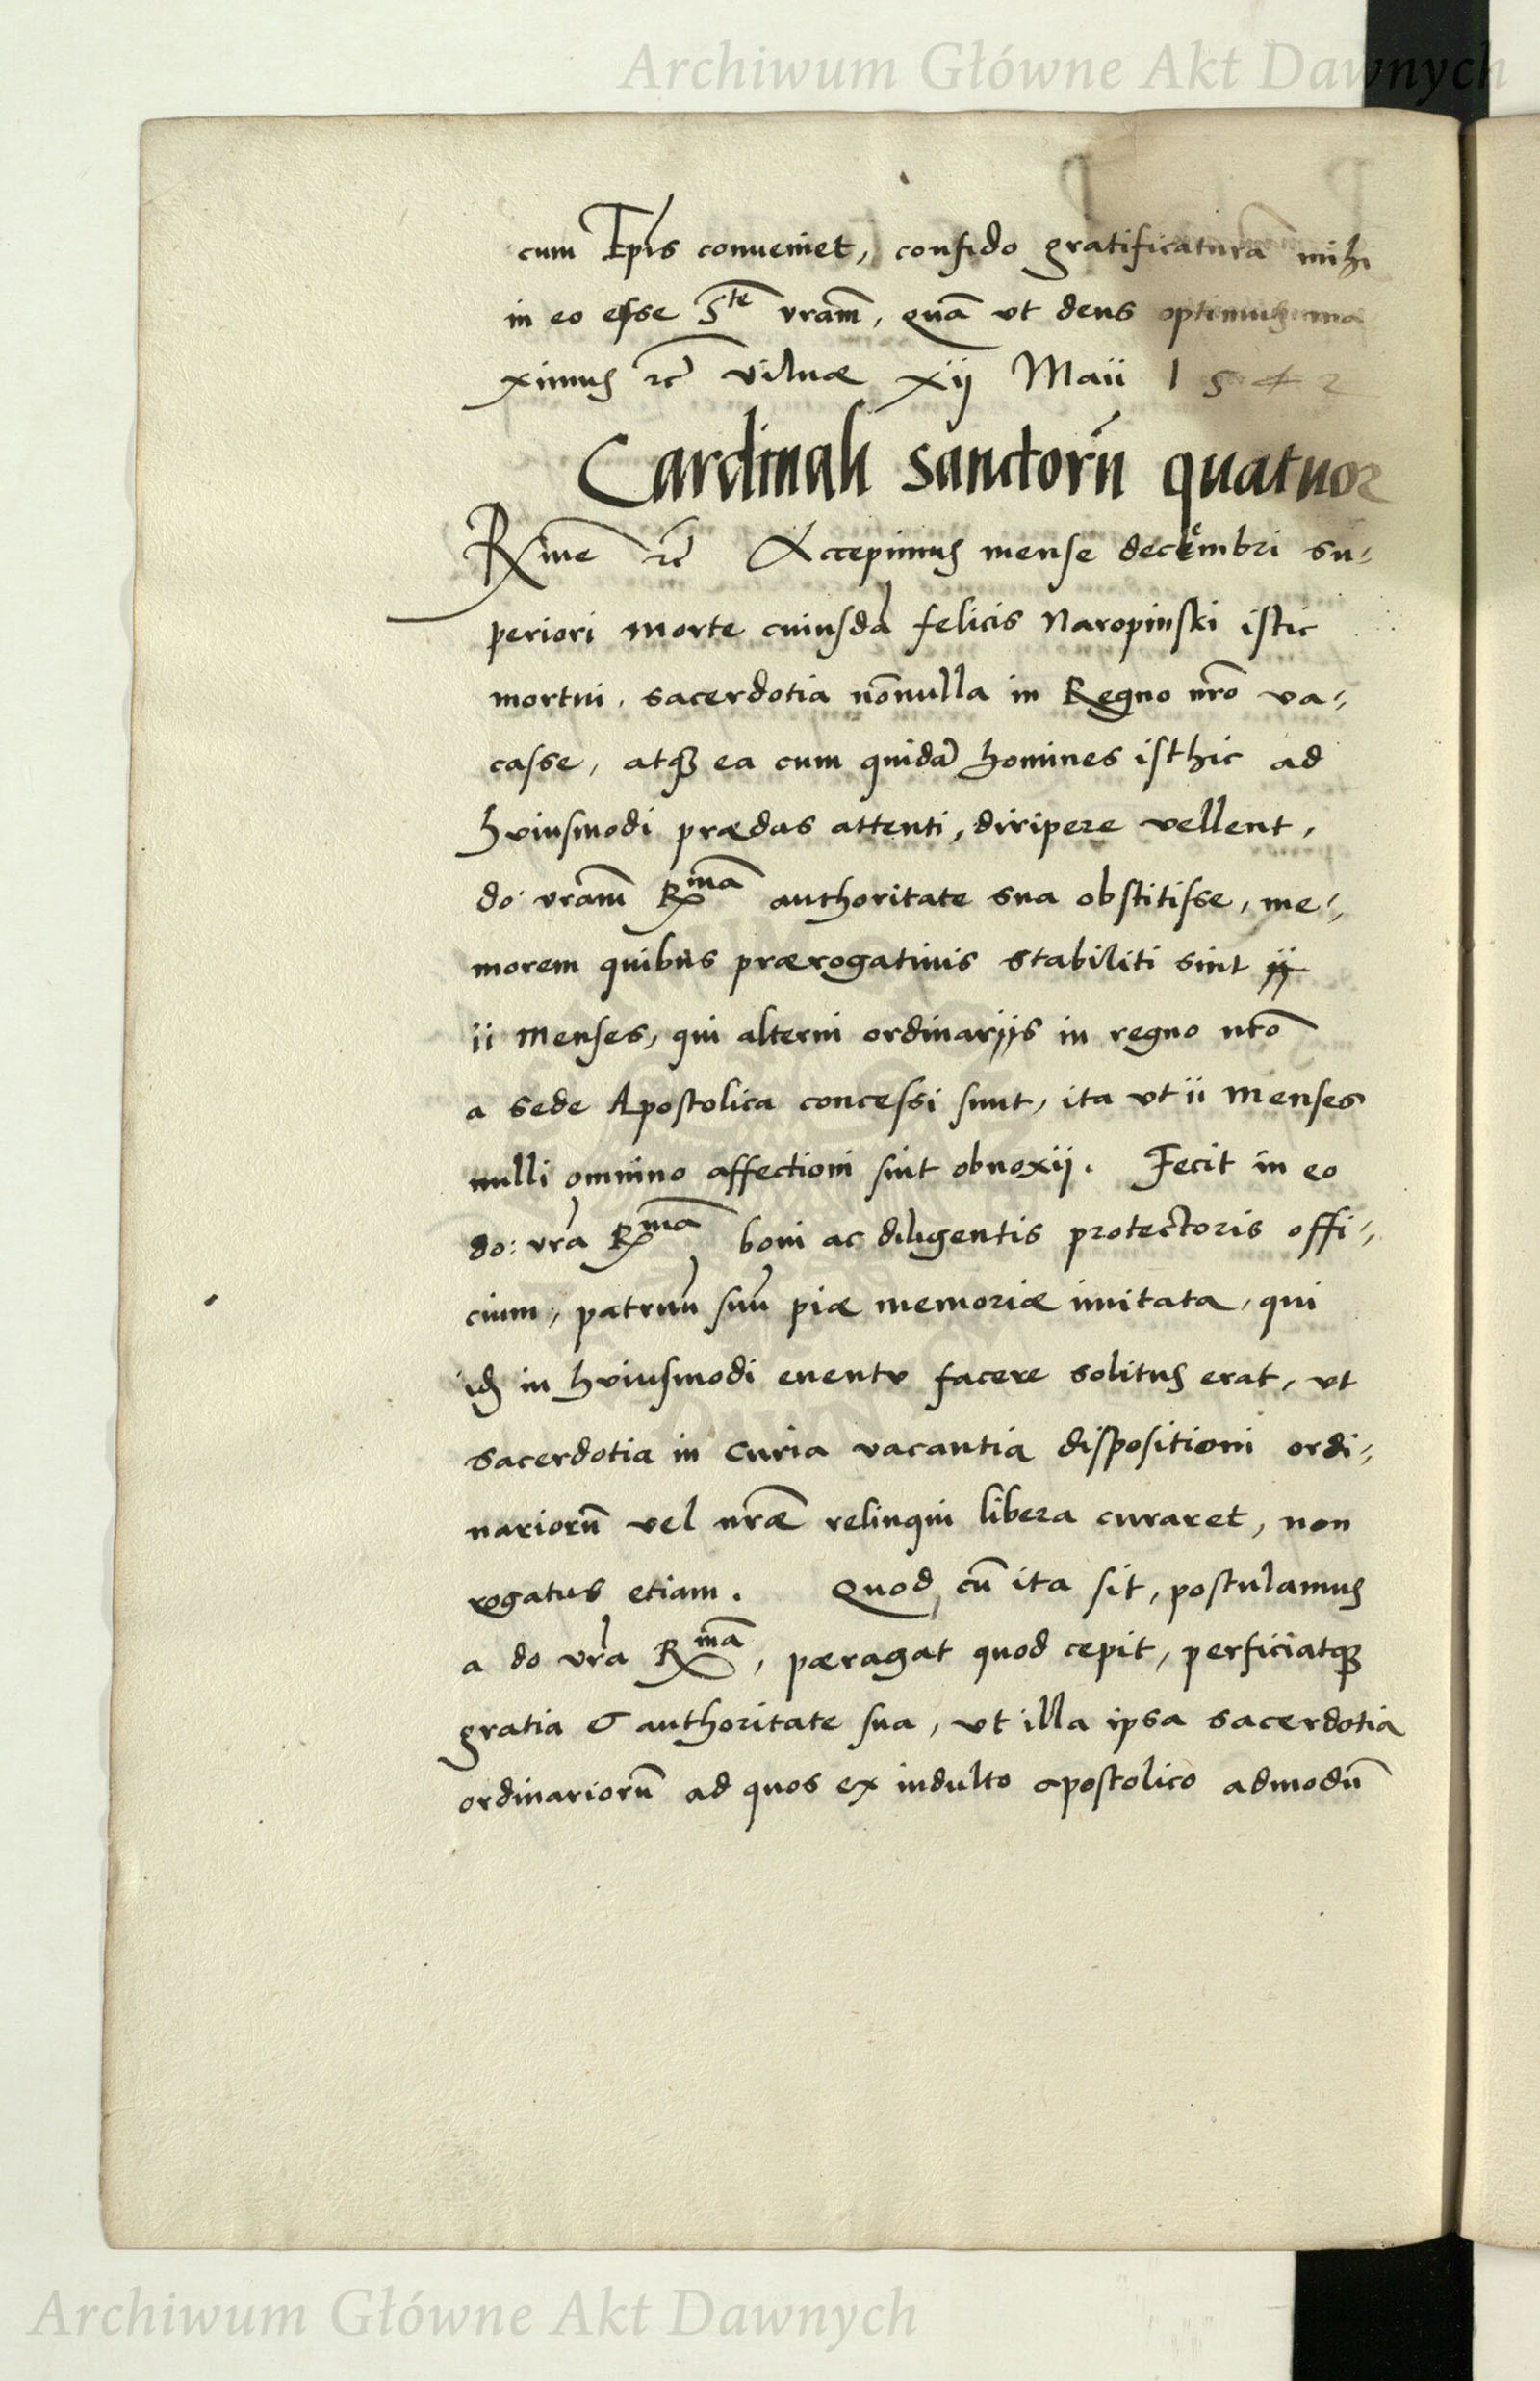 Archiwum Główne Akt Dawnych
cum Ep̃is conueniet, confido gratificaturã mihi
in eo esse Sᵗᵉ vram̃, quã vt deus optimus ma
ximus rc̃ Vilnæ xij Maii 1542
Cardinali sanctorũ quatuor
Rx̃me rc̃ Accepimus mense decembri su⸗
periori morte cuiusdã felicis Naropinski istic
mortui, sacerdotia nõnulla in Regno nrõ va⸗
casse, atqꝫ ea cum quidã homines isthic ad
hviusmodi prædas attenti, diripere vellent,
do: vram̃ Rᵐᵃ authoritate sua obstitisse, me⸗
morem quibus prærogatiuis stabiliti sint ij
ii menses, qui alterni ordinarijs in regno nrõ
a sede Apostolica concessi sunt, ita vt ii menses
nulli omnino affectioni sint obnoxij. Fecit in eo
do: vrã Rᵐᵃ boni ac diligentis protectoris offi⸗
cium, patruũ suũ piæ memoriæ imitata, qui
id in hviusmodi euentv facere solitus erat, vt
sacerdotia in curia vacantia dispositioni ordi⸗
nariorũ vel nrãe relinqui libera curaret, non
rogatus etiam. Quod cũ ita sit, postulamus
a do vrã Rᵐᵃ, pæragat quod cepit, perficiatqꝫ
gratia & authoritate sua, vt illa ipsa sacerdotia
ordinariorũ ad quos ex indulto apostolico admodũ
Archiwum Główne Akt Dawnych